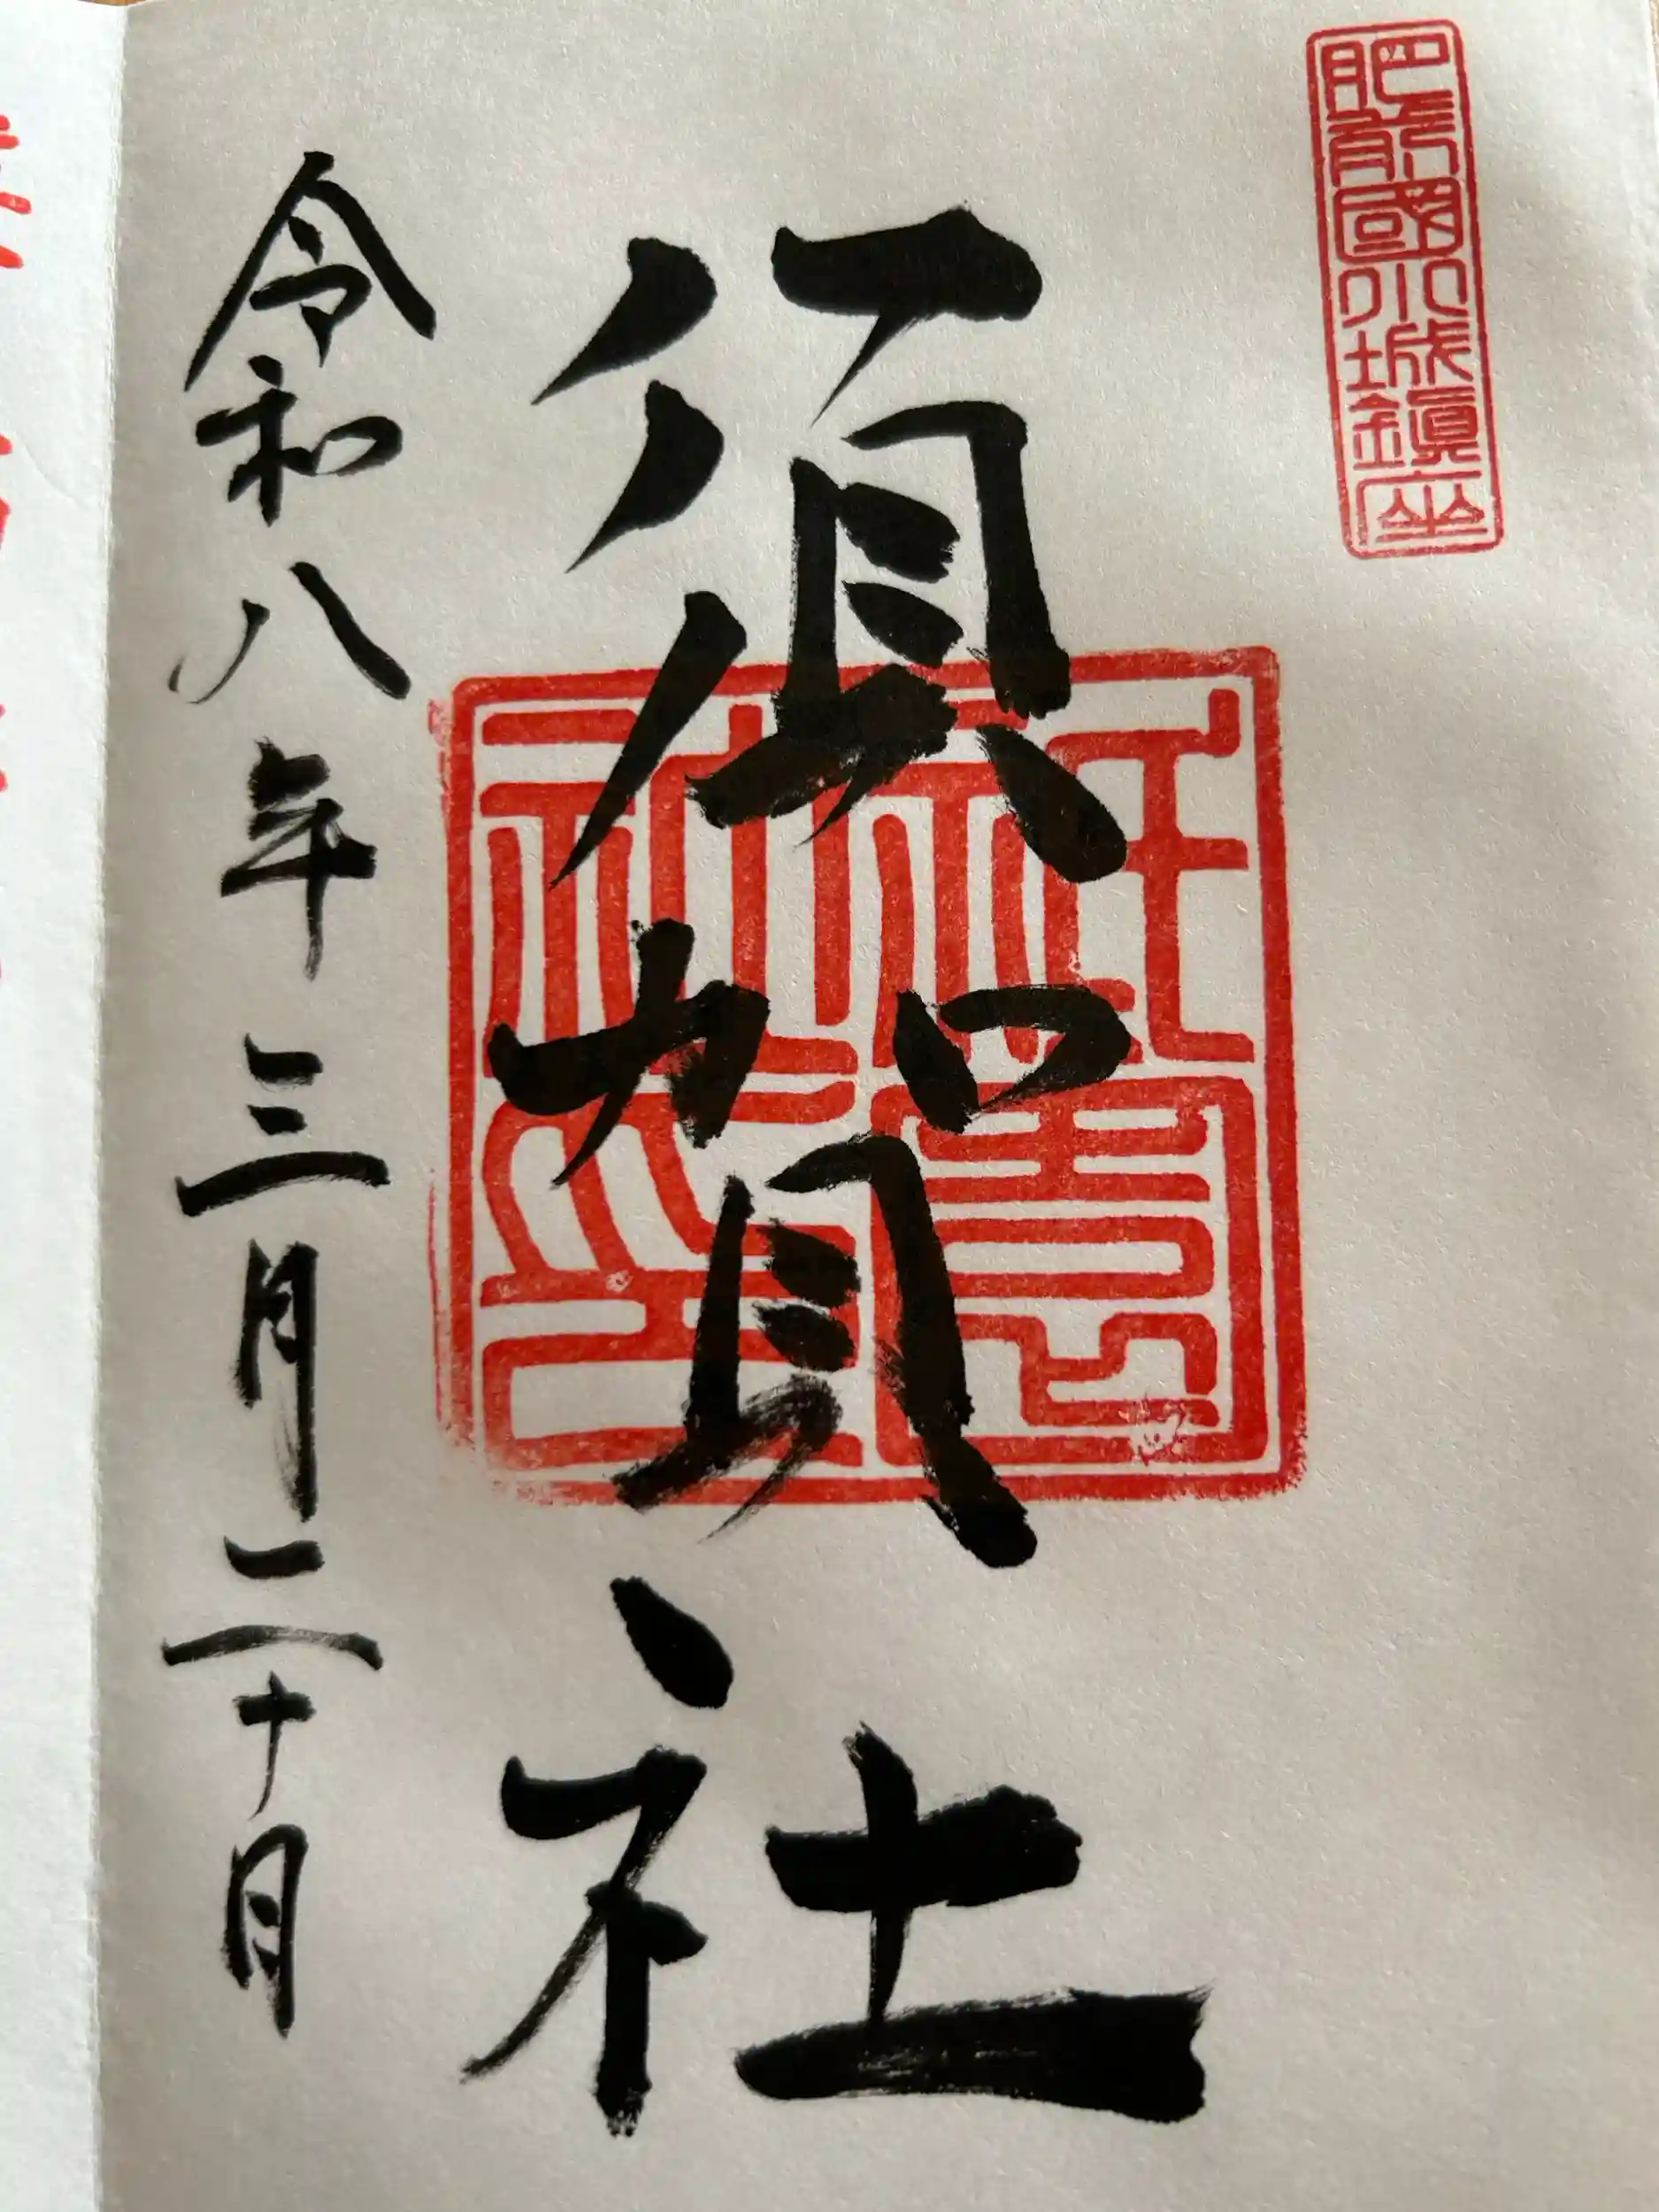 肥前國小城鎮座
須賀社
祇園社印
令和八年三月二十日